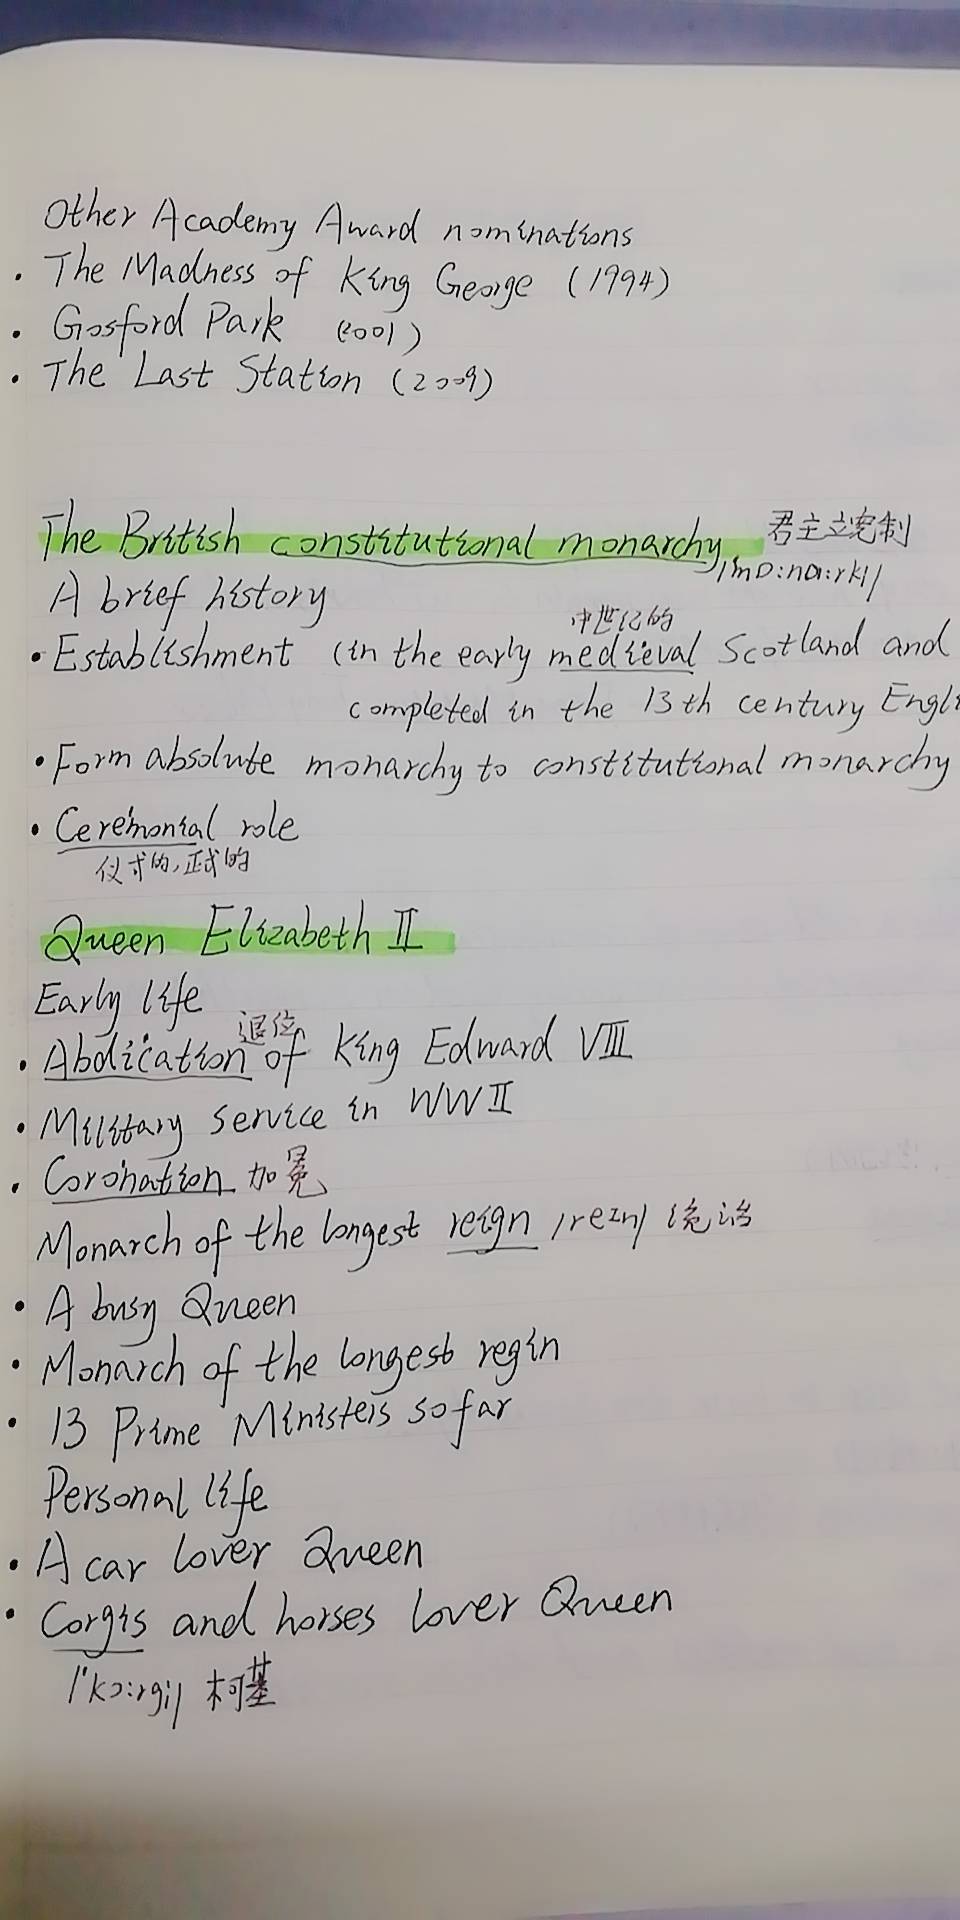 Other Academy Award nominations
· The Madness of King George (1994)
· Gosford Park (2001)
· The Last Station (2009)
The British constitutional monarchy 君主立宪制
/mɒ:nɑ:rki/
A brief history
中世纪的
· Establishment (in the early medieval Scotland and
completed in the 13th century Engl
· Form absolute monarchy to constitutional monarchy
· Ceremonial role
仪式的,正式的
Queen Elizabeth II
Early life
退位
· Abdication of King Edward VIII
· Military service in WWII
· Coronation 加冕
Monarch of the longest reign /reɪn/ 统治
· A busy Queen
· Monarch of the longest regin
· 13 Prime Ministers so far
Personal life
· A car lover Queen
· Corgis and horses lover Queen
/'kɔ:rgi/ 柯基